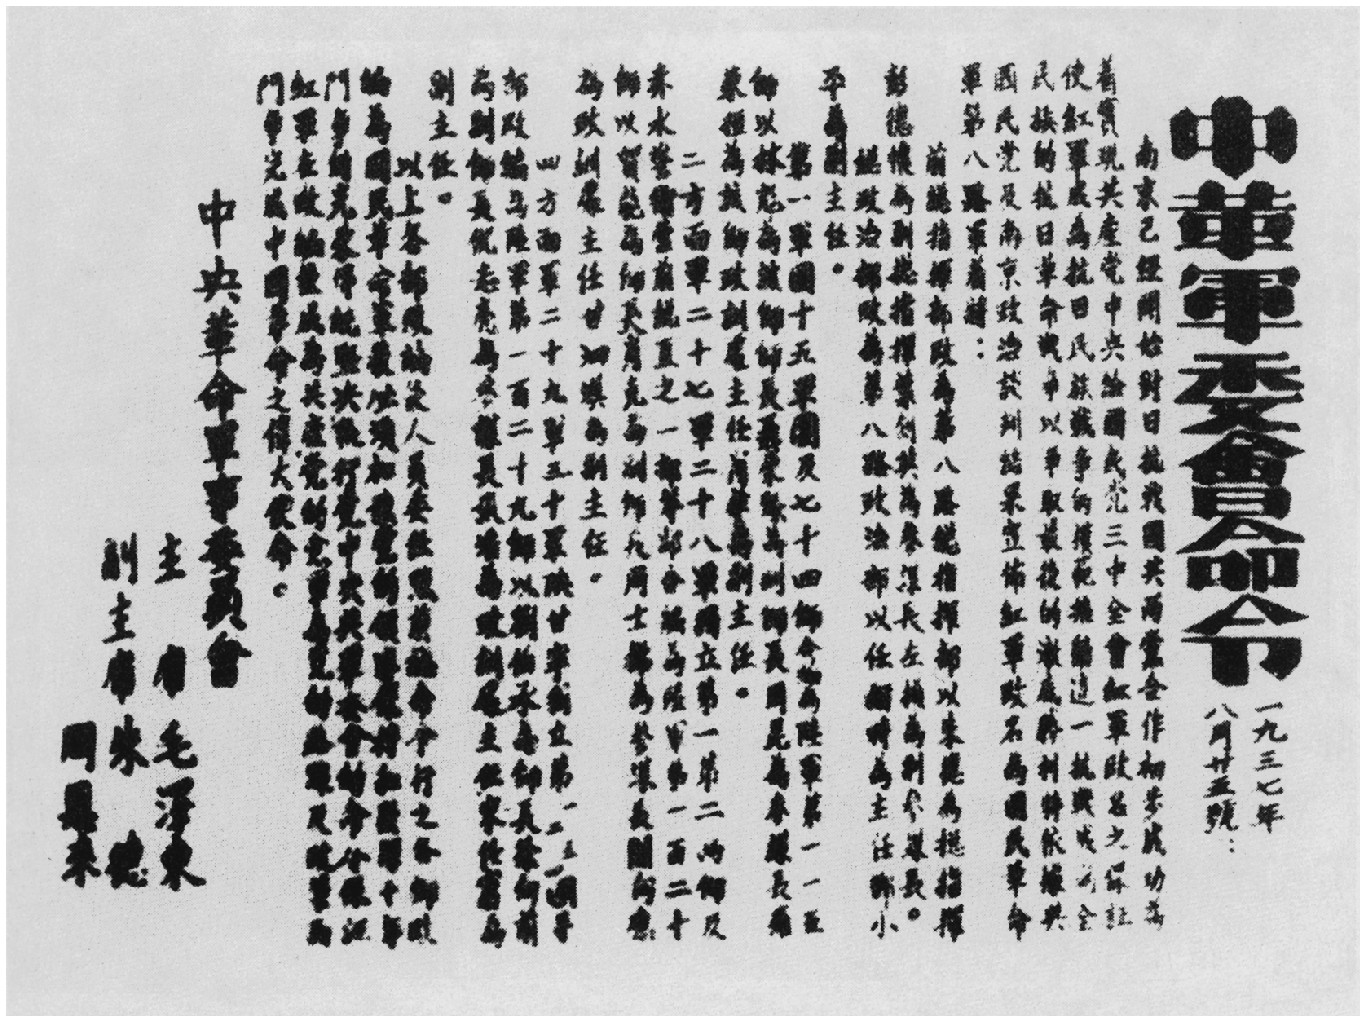 中革軍委會命令
一九三七年
八月廿五號：
南京已經開始對日抗戰國共兩黨合作初步成功為
着實現共產黨中央給國民党三中全會紅軍改名之保証
使紅軍成為抗日民族戰爭的模範推動這一抗戰成為全
民族的抗日革命戰爭以爭取最後的澈底勝利特依據與
國民党及南京政治談判結果宣佈紅軍改名為國民革命
軍第八路軍着將：
前總指揮部改為第八路總指揮部以朱德為總指揮
彭德懷為副總指揮葉劍英為參謀長左權為副參謀長。
總政治部改為第八路政治部以任弼時為主任鄧小
平為副主任。
第一軍團十五軍團及七十四師合編為陸軍第一一五
師以林彪為該師師長聶榮臻為副師長周昆為參謀長羅
榮桓為該師政訓處主任蕭華為副主任。
二方面軍二十七軍二十八軍獨立第一第二兩師及
赤水警衛營前總直之一部等部合編為陸軍第一百二十
師以賀龍為師長肖克為副師長周士梯為參謀長關向應
為政訓處主任甘泗淇為副主任。
四方面軍二十九軍三十軍陝甘寧獨立第一二三四團等
部改編為陸軍第一百二十九師以劉伯承為師長徐向前
為副師長倪志亮為參謀長張浩為政訓處主任宋任窮為
副主任。
以上各部改編後人員委任照前總命令行之各師改
編為國民革命軍後必須加強黨的領導保持和發揚十年
鬥爭的光榮傳統堅決執行黨中央與軍委會的命令保証
紅軍在改編後成為共產党的党軍為党的路線及政策而
鬥爭完成中國革命之偉大使命。
中央革命軍事委員會
主席毛澤東
副主席朱德
周恩來